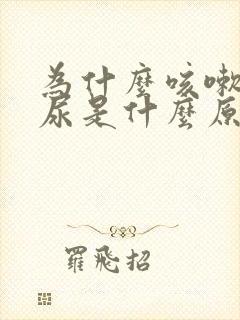 為什麼咳嗽
尿是什麼原
羅飛招